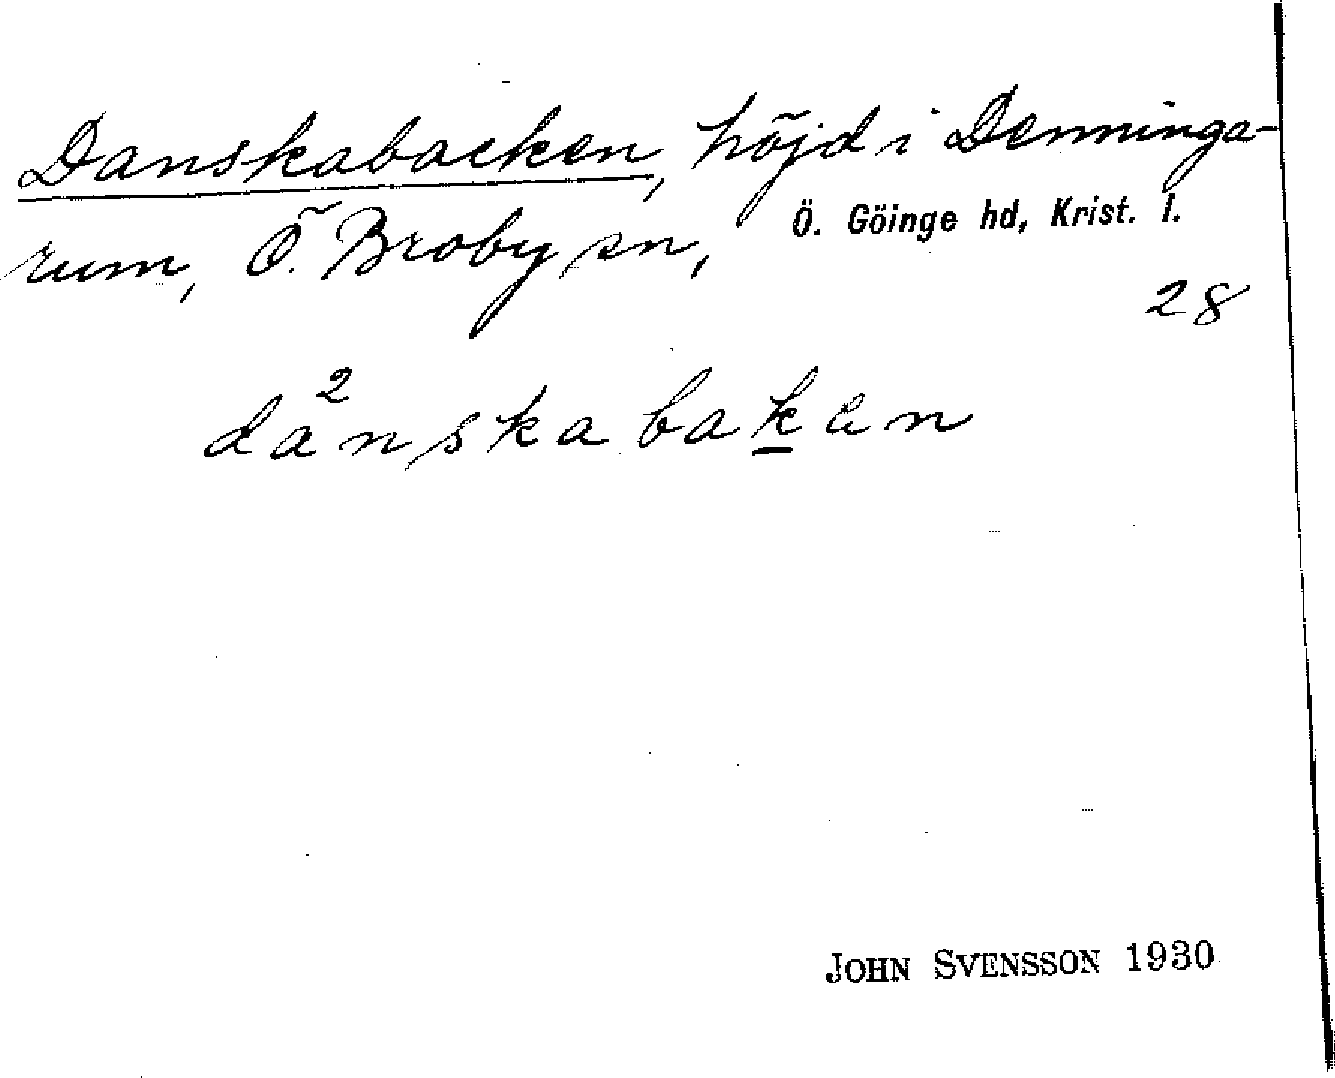 Danskabacken, höjd i Denninga-
rum, Ö. Broby sn, Ö. Göinge hd, Krist. l.
28
da²nskabaken
JOHN SVENSSON 1930